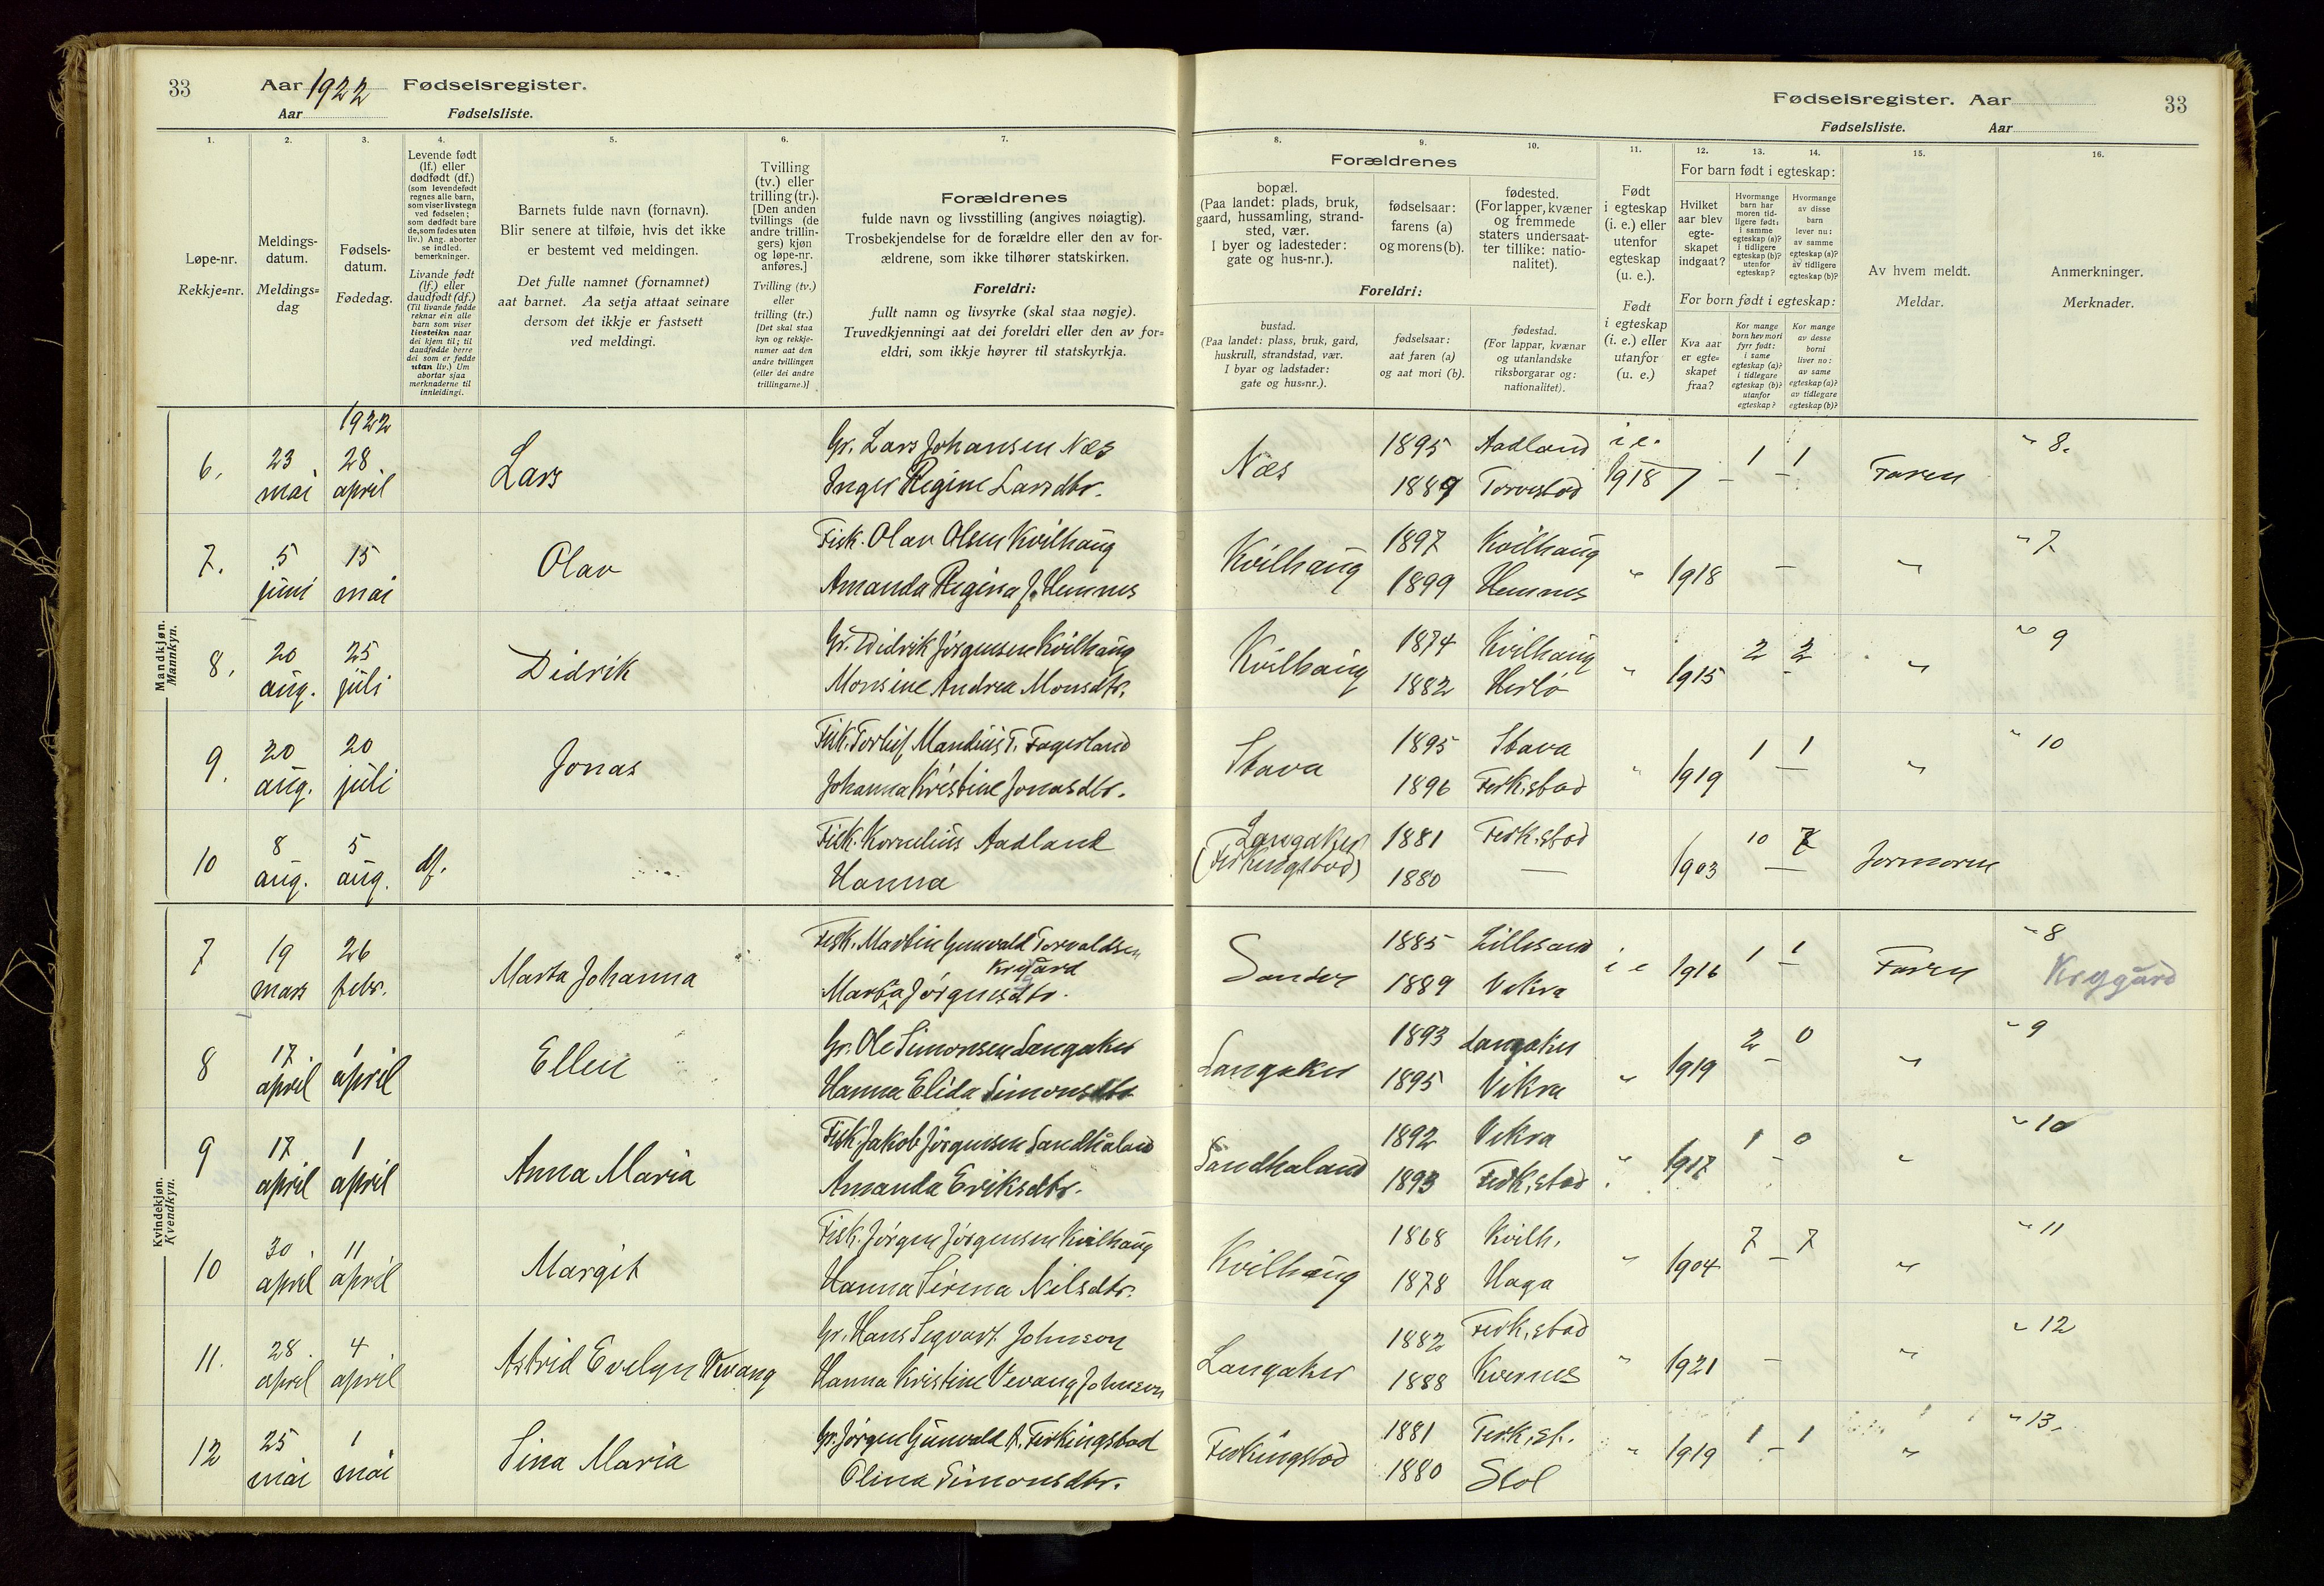 33
Aar 1922 Fødselsregister.
Aar Fødselsliste.
1. 2. 3. 4. 5. 6. 7.
Løpe-nr.
Rekkje=nr.
Meldings-
datum.
Meldings=
dag
Fødsels-
datum.
Fødedag.
Levende født
(lf.) eller
dødfødt (df.)
(som levendefødt
regnes alle barn,
som viser livstegn
ved fødselen;
som dødfødt bare
de, som fødes uten
liv.) Ang. aborter
se indled.
bemerkninger.
Livande født
(lf.) eller
daudfødt (df.)
(Til livande fødde
reknar ein alle
barn som viser
livsteikn naar
dei kjem til; til
daudfødde berre
dei som er fødde
utan liv.) Um
abortar sjaa
merknaderne til
innleidingi.
Barnets fulde navn (fornavn).
Blir senere at tilføie, hvis det ikke
er bestemt ved meldingen.
Det fulle namnet (fornamnet)
aat barnet. Aa setja attaat seinare
dersom det ikkje er fastsett
ved meldingi.
Tvilling
(tv.) eller
trilling (tr.).
[Den anden
tvillings (de
andre trillin-
gers) kjøn
og løpe-nr.
anføres.]
Tvilling (tv.)
eller
trilling (tr.)
[Det skal staa
kyn og rekkje-
numer aat den
andre tvillingen
(eller dei andre
trillingarne.)]
Forældrenes
fulde navn og livsstilling (angives nøiagtig).
Trosbekjendelse for de forældre eller den av for-
ældrene, som ikke tilhører statskirken.
Foreldri:
fullt namn og livsyrke (skal staa nøgje).
Truvedkjenningi aat dei foreldri eller den av for=
eldri, som ikkje høyrer til statskyrkja.
Fødselsregister. Aar
33
Fødselsliste. Aar
8. 9. 10. 11. 12. 13. 14. 15. 16.
Forældrenes
bopæl.
(Paa landet: plads, bruk,
gaard, hussamling, strand-
sted, vær.
I byer og ladesteder:
gate og hus-nr.).
fødselsaar:
farens (a)
og morens (b).
fødested.
(For lapper, kvæner
og fremmede
staters undersaat-
ter tillike: natio-
nalitet).
Foreldri:
bustad.
(Paa landet: plass, bruk, gard,
huskrull, strandstad, vær.
I byar og ladstader:
gate og hus=nr.).
fødselsaar:
aat faren (a)
og aat mori (b).
fødestad.
(For lappar, kvænar
og utanlandske
riksborgarar og:
nationalitet).
Født
i egteskap
(i. e.) eller
utenfor
egteskap
(u. e.).
Født
i egteskap
(i. e.) eller
utanfor
(u. e.)
For barn født i egteskap:
Hvilket
aar blev
egte-
skapet
indgaat?
Hvormange
barn har
moren tid-
ligere født:
i samme
egteskap (a)?
i tidligere
egteskap (b)?
utenfor
egteskap?
Hvormange
av disse
barn
lever nu:
av samme
egteskap (a)?
av tidligere
egteskap (b)?
For born født i egteskap:
Kva aar
er egte=
skapet
fraa?
Kor mange
born hev mori
fyrr født:
i same
egteskap (a)?
i tidlegare
egteskap (b)?
utanfor
egteskap?
Kor mange
av desse
borni
liver no:
av same
egteskap (a)?
av tidlegare
egteskap (b)?
Av hvem meldt.
Meldar.
Anmerkninger.
Merknader.
Mandkjøn.
Mannkyn.
1922
6. 23 mai 28 april Lars Gr. Lars Johansen Næs Næs 1895 Aadland i e. 1918 1 1 Faren " 8.
Inger Regine Larsdtr. 1889 Torvestad
7. 5 juni 15 mai Olav Fisk. Olav Olsen Kvilhaug Kvilhaug 1897 Kvilhaug " 1918 — " " 7
Amanda Regina J. Hemnes 1899 Hemnes
8. 20 aug. 25 juli Didrik Gr. Didrik Jørgensen Kvilhaug Kvilhaug 1874 Kvilhaug " 1915 2 2 " " 9
Monsine Andrea Monsdtr. 1882 Herlø
9. 20 aug. 20 juli Jonas Fisk. Torleif Mandius T. Fagerland Stava 1895 Stava " 1919 1 1 " " 10
Johanna Kristine Jonasdtr. 1896 Ferk.stad
10 8 aug. 5 aug. df. Fisk. Kornelius Aadland Langaker (Ferkingstad) 1881 Ferk.stad 1903 10 7 Jormoren
Hanna 1880 —
Kvindekjøn.
Kvendkyn.
7 19 mars 26 febr. Marta Johanna Fisk. Martin Gunvald Torvaldsen Krygård Sander 1885 Lillesand i e 1916 1 1 Faren " 8 Krygård
Marta Jørgensdtr. 1889 Vikra
8 17 april 1 april Ellen Gr. Ole Simonsen Langaker Langaker 1893 Langaker " 1919 2 0 " " 9
Hanna Elida Simonsdtr 1895 Vikra
9 17 april 1 april Anna Maria Fisk. Jakob Jørgensen Sandhåland Sandhaland 1892 Vikra " 1917 1 0 " " 10
Amanda Eriksdtr. 1893 Ferk.stad
10 30 april 11 april Margit Fisk. Jørgen Jørgensen Kvilhaug Kvilhaug 1868 Kvilh. " 1904 7 7 " " 11
Hanna Serina Nilsdtr. 1878 Haga
11. 28 april 4 april Astrid Evelyn Vevang Gr. Hans Segvart Johnson Langaker 1882 Ferk.stad " 1921 — " " 12
Hanna Kristine Vevang Johnson 1888 Kvernes
12 25 mai 1 mai Sina Maria Gr. Jørgen Gunvald A. Ferkingstad Ferkingstad 1881 Ferk.st. " 1919 1 1 " " 13.
Olina Simonsdtr. 1880 Stol